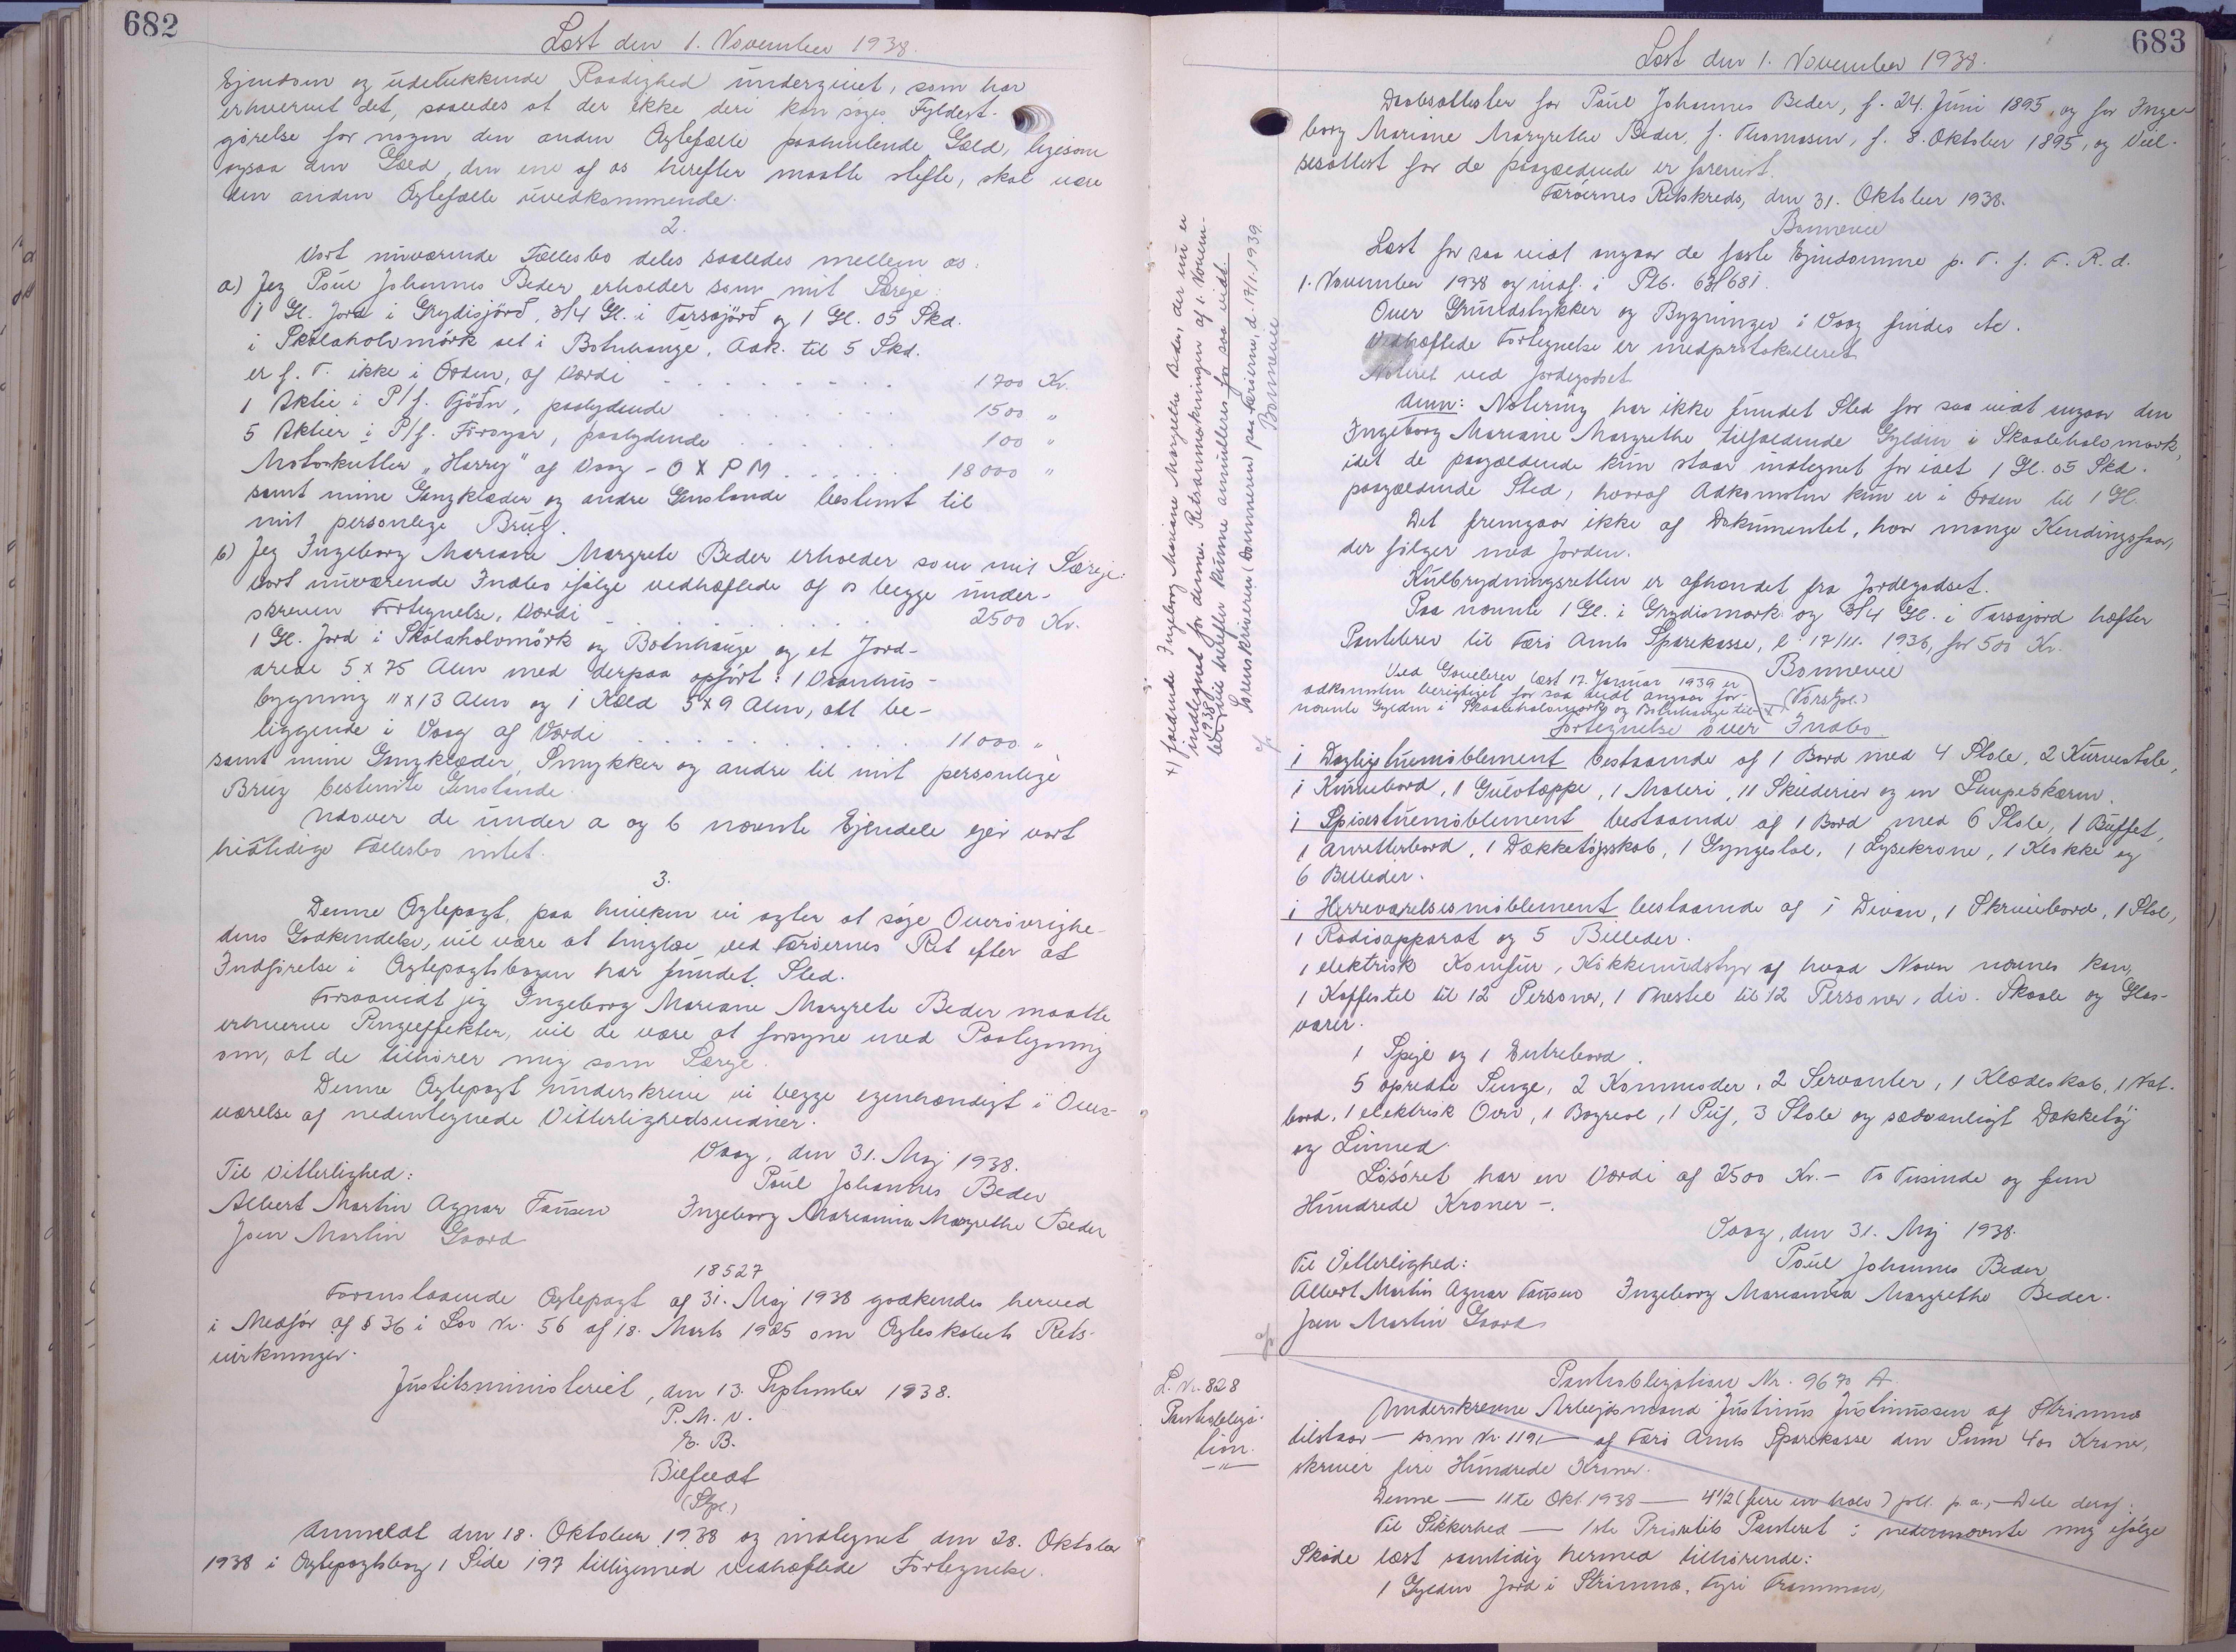 682
Læst den 1. November 1938.
Ejendom og udelukkende Raadighed undergivet, som har
erhvervet det, saaledes at der ikke deri kan søges Fyldest-
gørelse for nogen den anden Ægtefælle paahvilende Gæld, ligesom
ogsaa den Gæld, den ene af os herefter maatte stifte, skal være
den anden Ægtefælle uvedkommende.
2.
Vort nuværende Fællesbo deles saaledes mellem os:
a) Jeg Poul Johannes Beder erholder som mit Særeje:
1 Gl. Jord i Grydisjörð, 3/4 Gl. i Tarsajörð og 1 Gl. 05 Skd.
i Skálaholvmörk set i Botnhauge, Adk. til 5 Skd.
er f. T. ikke i Orden, af Værdi 1700 Kr.
1 Aktie i P/f. Tjöðn, paalydende 1500 "
5 Aktier i P/f. Firoyar, paalydende 100 "
Motorkutter "Harry" af Vaag - O X P M 18000 "
samt mine Gangklæder og andre Genstande bestemt til
mit personlige Brug.
b) Jeg Ingeborg Mariane Margrete Beder erholder som mit Særeje:
vort nuværende Indbo ifølge vedhæftede af os begge under-
skreven Fortegnelse, Værdi 2500 Kr.
1 Gl. Jord i Skálaholvmörk og Botnhauge og et Jord-
areal 5 x 75 Alen med derpaa opført: 1 Vaanhus-
bygning 11 x 13 Alen og 1 Kæld 5 x 9 Alen, alt be-
liggende i Vaag af Værdi 11000 "
samt mine Gangklæder, Smykker og andre til mit personlige
Brug bestemte Genstande.
Udover de under a og b nævnte Ejendele ejer vort
hidtidige Fællesbo intet.
3.
Denne Ægtepagt, paa hvilken vi agter at søge Overøvrighe-
dens Godkendelse, vil være at tinglæse ved Færøernes Ret efter at
Indførelse i Ægtepagtsbogen har fundet Sted.
Forsaavidt jeg Ingeborg Mariane Margrete Beder maatte
erhverve Pengeeffekter, vil de være at forsyne med Paategning
om, at de tilhører mig som Særeje.
Denne Ægtepagt underskrive vi begge egenhændigt i Over-
værelse af nedentegnede Vitterlighedsvidner.
Vaag, den 31. Maj 1938.
Til Vitterlighed:
Poul Johannes Beder
Albert Martin Agnar Tausen Ingeborg Marianna Margrethe Beder
Joen Martin Gaard
18527
Foranstaaende Ægtepagt af 31. Maj 1938 godkendes herved
i Medfør af § 36 i Lov Nr. 56 af 18. Marts 1925 om Ægteskabets Rets-
virkninger.
Justitsministeriet, den 13. September 1938.
P. M. V.
E. B.
Bilfeldt
(Stpl.)
Anmeldt den 18. Oktober 1938 og indtegnet den 28. Oktober
1938 i Ægtepagtsbog 1 Side 197 tilligemed vedhæftede Fortegnelse.
683
Læst den 1. November 1938.
Daabsattester for Poul Johannes Beder, f. 24. Juni 1895, og for Inge-
borg Mariane Margrethe Beder, f. Thomasen, f. 8. Oktober 1895, og Viel-
sesattest for de paagældende er forevist.
Færøernes Retskreds, den 31. Oktober 1938.
Bonnevie
Læst for saa vidt angaar de faste Ejendomme p. T. f. F. R. d.
1. November 1938 og indf. i Ptb. 63/681.
Over Grundstykker og Bygninger i Vaag findes etc.
Vedhæftede Fortegnelse er medprotokolleret.
Noteret ved Jordegodset.
Anm: Notering har ikke fundet Sted for saa vidt angaar den
Ingeborg Mariane Margrethe tilfaldende Gylden i Skaaleholmmark,
idet de paagældende kun staar indtegnet for ialt 1 Gl. 05 Skd.
paagældende Sted, hvoraf Adkomsten kun er i Orden til 1 Gl.
Det fremgaar ikke af Dokumentet, hvor mange Kendingsfaar,
der følger med Jorden.
Kulbrydningsretten er afhændet fra Jordegodset.
Paa nævnte 1 Gl. i Grydismark og 3/4 Gl. i Tarsajord hæfter
Pantebrev til Færø Amts Sparekasse, l. 17/11. 1936, for 500 Kr.
Bonnevie
(Vors Spl.)
Ved Gavebrev læst 17. Januar 1939 er
adkomsten berigtiget for saa vidt angaar for-
nævnte Gylden i Skaaleholmmark og Botnhauge til- x)
x) faldende Ingeborg Mariane Margrethe Beder, der nu er
indtegnet for denne. Retsanmærkningen af 1. Novem-
ber 1938 vil herefter kunne annulleres for saa vidt.
Sorenskriveren (Dommeren) paa Færøerne, d. 17/1. 1939.
Bonnevie
Fortegnelse over Indbo
1 Dagligstuemøblement bestaaende af 1 Bord med 4 Stole, 2 Kurvestole,
1 Kurvebord, 1 Gulvtæppe, 1 Maleri, 11 Skilderier og en Lampeskærm.
1 Spisestuemøblement bestaaende af 1 Bord med 6 Stole, 1 Buffet,
1 Anretterbord, 1 Dækketøjsskab, 1 Gyngestol, 1 Lysekrone, 1 Klokke og
6 Billeder.
1 Herreværelsesmøblement bestaaende af 1 Divan, 1 Skrivebord, 1 Stol,
1 Radioapparat og 5 Billeder.
1 elektrisk Komfur, Køkkenudstyr af hvad Navn nævnes kan,
1 Kaffestel til 12 Personer, 1 Thestel til 12 Personer, div. Skaale og Glas-
varer.
1 Spejl og 1 Entrebord.
5 opredte Senge, 2 Kommoder, 2 Servanter, 1 Klædeskab, 1 Nat-
bord, 1 elektrisk Ovn, 1 Bogreol, 1 Puf, 3 Stole og sædvanligt Dækketøj
og Linned.
Løsøret har en Værdi af 2500 Kr. - To Tusinde og fem
Hundrede Kroner -.
Vaag, den 31. Maj 1938.
Til Vitterlighed:
Poul Johannes Beder
Albert Martin Agnar Tausen Ingeborg Marianna Margrethe Beder.
Joen Martin Gaard
L. Nr. 828
Pantobliga-
tion.
Pantobligation Nr. 9670 A.
Underskrevne Arbejdsmand Justinus Justinussen af Strimnæ
tilstaar - som Nr. 1191 - af Færø Amts Sparekasse den Sum 400 Kroner,
skriver fire Hundrede Kroner.
Denne - 11te Okt. 1938 - 4 1/2 (fire en halv) pCt. p. a., - Dele deraf:
Til Sikkerhed - 1ste Prioritets Panteret i nedennævnte mig ifølge
Skøde læst samtidig hermed tilhørende:
1 Gylden Jord i Strimnæ, Fyri Tramman,